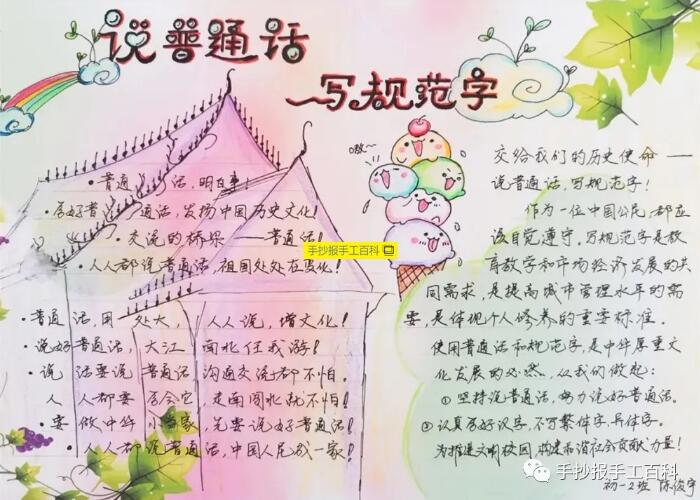 说普通话
写规范字
普通话，明白事！
学好普通话，发扬中国历史文化！
交流的桥梁——普通话！
人人都说普通话，祖国处处在变化！
普通话，用处大，人人说，增文化！
说好普通话，大江南北任我游！
说话要说普通话 沟通交流都不怕。
人人都要学会它，走南闯北就不怕！
要做中华小当家，先要说好普通话！
人人都说普通话，中国人民成一家！
嗷~
手抄报手工百科
交给我们的历史使命——
说普通话，写规范字！
作为一位中国公民，都应
该自觉遵守，写规范字是教
育教学和市场经济发展的共
同需求，是提高城市管理水平的需
要，是体现个人修养的重要标准。
使用普通话和规范字，是中华厚重文
化发展的必然，从我们做起：
①坚持说普通话，努力说好普通话。
②认真写好汉字，不写繁体字、异体字。
为推进文明校园，构建和谐社会贡献力量！
初一2班 陈俊宇
手抄报手工百科